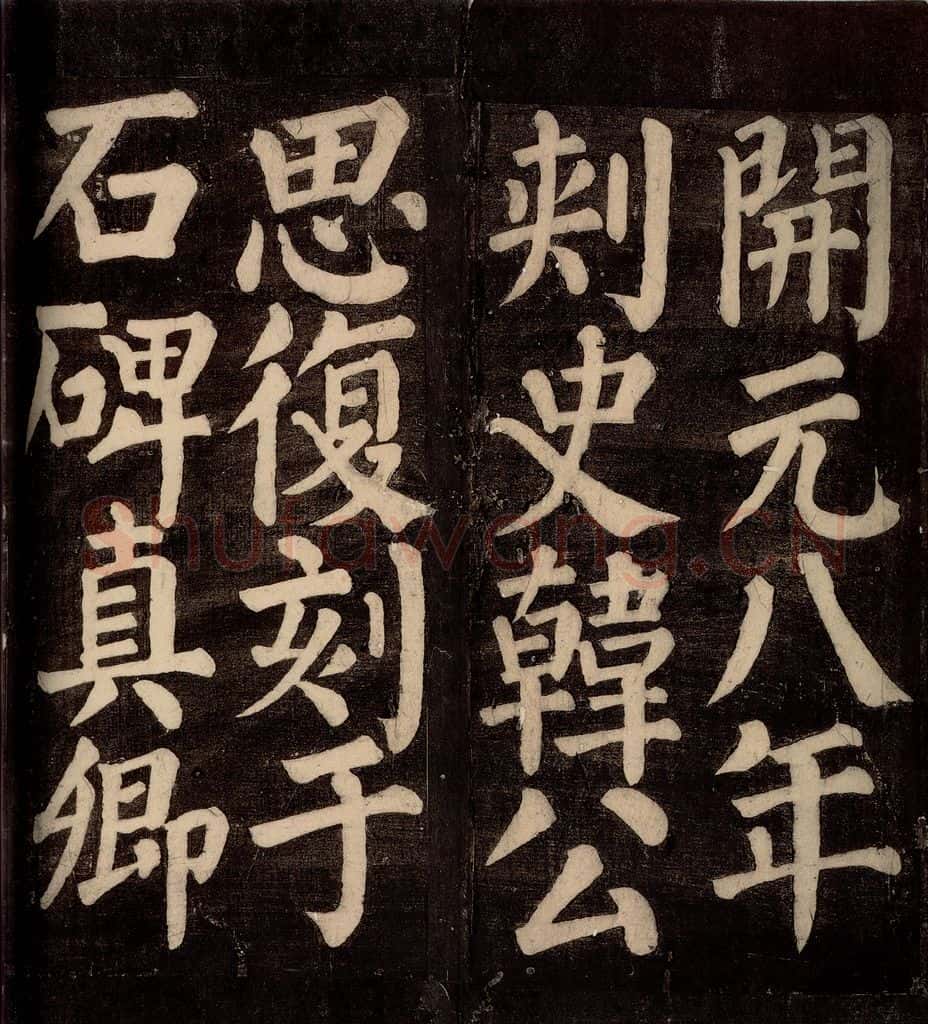 開元八年
刾史韓公
思復刻于
石碑真卿
shufawang.CN